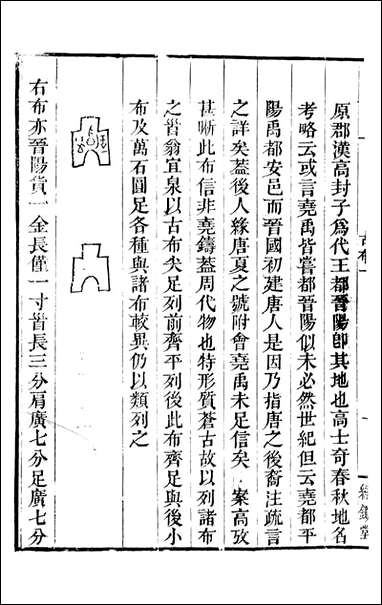 原郡漢高封子爲代王都晉陽卽其地也高士奇春秋地名
考略云或言堯禹皆嘗都晉陽似未必然世紀但云堯都平
陽禹都安邑而晉國初建唐人是因乃指唐之後裔注疏言
之詳矣葢後人緣唐夏之號附會堯禹未足信矣 案高攷
甚晰此布信非堯鑄葢周代物也特形質蒼古故以列諸布
之首翁宜泉以古布尖足列前齊平列後此布齊足與後小
布及萬石圓足各種與諸布較異仍以類列之
右布亦晉陽貨一金長僅一寸首長三分肩廣七分足廣七分